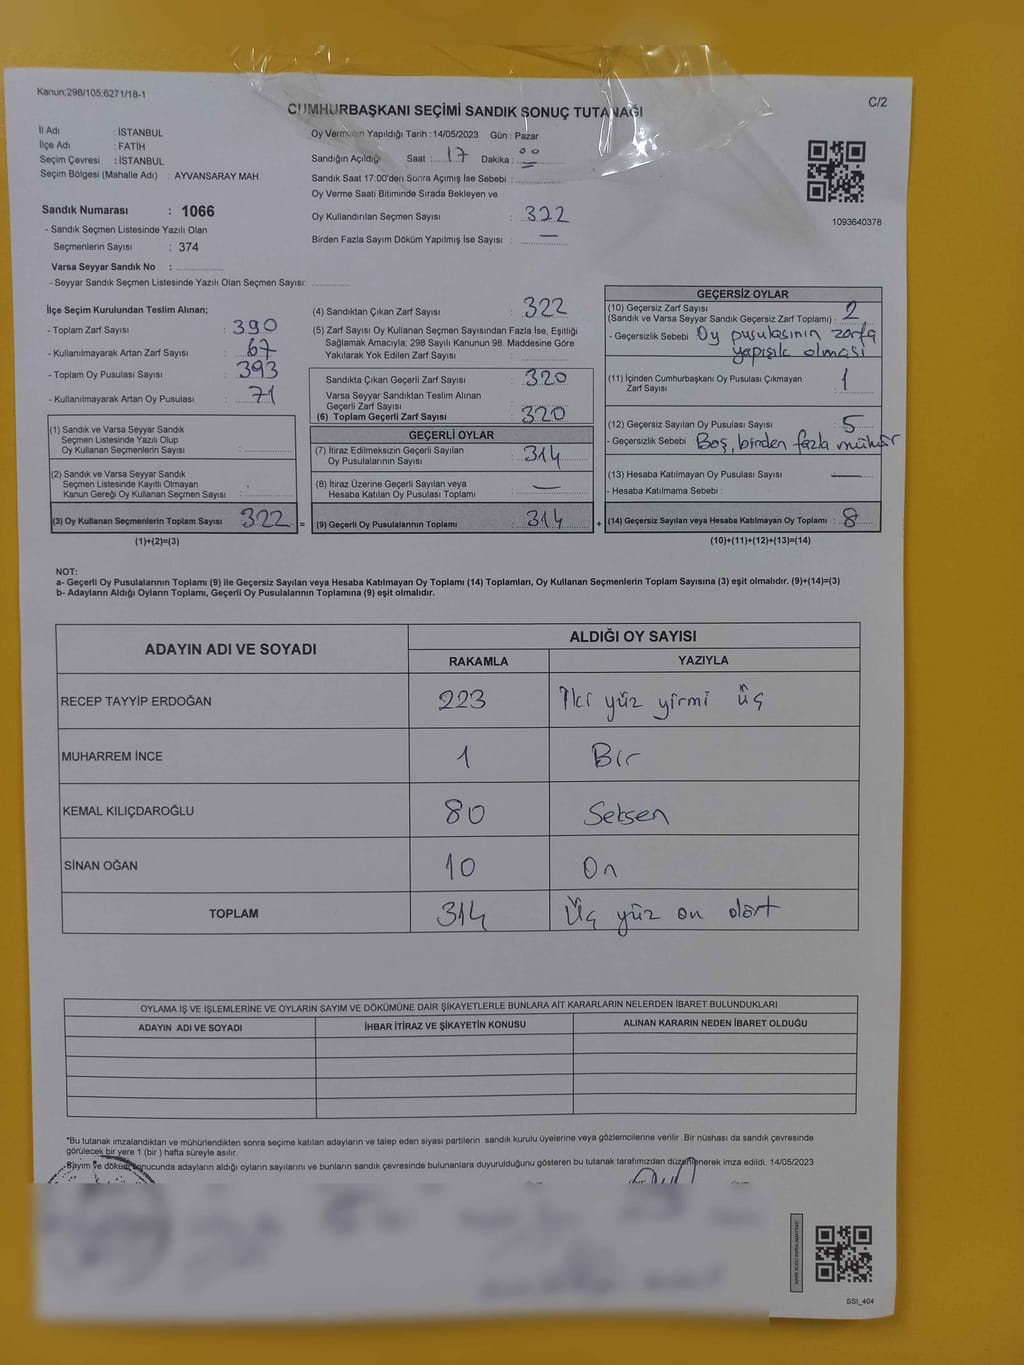 Kanun;298/105;6271/18-1
C/2
CUMHURBAŞKANI SEÇİMİ SANDIK SONUÇ TUTANAĞI
İl Adı : İSTANBUL
İlçe Adı : FATİH
Seçim Çevresi : İSTANBUL
Seçim Bölgesi (Mahalle Adı) : AYVANSARAY MAH.
Sandık Numarası : 1066
- Sandık Seçmen Listesinde Yazılı Olan
Seçmenlerin Sayısı : 374
Varsa Seyyar Sandık No : ..............
- Seyyar Sandık Seçmen Listesinde Yazılı Olan Seçmen Sayısı: ............
Oy Vermenin Yapıldığı Tarih : 14/05/2023 Gün : Pazar
Sandığın Açıldığı Saat : 17 Dakika : 00
Sandık Saat 17:00'den Sonra Açımış İse Sebebi : ..............
Oy Verme Saati Bitiminde Sırada Bekleyen ve
Oy Kullandırılan Seçmen Sayısı : 322
Birden Fazla Sayım Döküm Yapılmış İse Sayısı : —
1093640378
İlçe Seçim Kurulundan Teslim Alınan;
- Toplam Zarf Sayısı : 390
- Kullanılmayarak Artan Zarf Sayısı : 67
- Toplam Oy Pusulası Sayısı : 393
- Kullanılmayarak Artan Oy Pusulası : 71
(1) Sandık ve Varsa Seyyar Sandık
Seçmen Listesinde Yazılı Olup
Oy Kullanan Seçmenlerin Sayısı : ............
(2) Sandık ve Varsa Seyyar Sandık
Seçmen Listesinde Kayıtlı Olmayan
Kanun Gereği Oy Kullanan Seçmen Sayısı : ............
(3) Oy Kullanan Seçmenlerin Toplam Sayısı 322 =
(1)+(2)=(3)
(4) Sandıktan Çıkan Zarf Sayısı : 322
(5) Zarf Sayısı Oy Kullanan Seçmen Sayısından Fazla İse, Eşitliği
Sağlamak Amacıyla; 298 Sayılı Kanunun 98. Maddesine Göre
Yakılarak Yok Edilen Zarf Sayısı : ............
Sandıkta Çıkan Geçerli Zarf Sayısı : 320
Varsa Seyyar Sandıktan Teslim Alınan
Geçerli Zarf Sayısı : ............
(6) Toplam Geçerli Zarf Sayısı : 320
GEÇERLİ OYLAR
(7) İtiraz Edilmeksizin Geçerli Sayılan
Oy Pusulalarının Sayısı : 314
(8) İtiraz Üzerine Geçerli Sayılan veya
Hesaba Katılan Oy Pusulası Toplamı : —
(9) Geçerli Oy Pusulalarının Toplamı : 314 +
GEÇERSİZ OYLAR
(10) Geçersiz Zarf Sayısı
(Sandık ve Varsa Seyyar Sandık Geçersiz Zarf Toplamı) : 2
- Geçersizlik Sebebi : Oy pusulasının zarfa
yapışık olması
(11) İçinden Cumhurbaşkanı Oy Pusulası Çıkmayan
Zarf Sayısı : 1
(12) Geçersiz Sayılan Oy Pusulası Sayısı : 5
- Geçersizlik Sebebi : Boş, birden fazla mühür
(13) Hesaba Katılmayan Oy Pusulası Sayısı : —
- Hesaba Katılmama Sebebi :
(14) Geçersiz Sayılan veya Hesaba Katılmayan Oy Toplamı : 8
(10)+(11)+(12)+(13)=(14)
NOT:
a- Geçerli Oy Pusulalarının Toplamı (9) ile Geçersiz Sayılan veya Hesaba Katılmayan Oy Toplamı (14) Toplamları, Oy Kullanan Seçmenlerin Toplam Sayısına (3) eşit olmalıdır. (9)+(14)=(3)
b- Adayların Aldığı Oyların Toplamı, Geçerli Oy Pusulalarının Toplamına (9) eşit olmalıdır.
ADAYIN ADI VE SOYADI ALDIĞI OY SAYISI
RAKAMLA YAZIYLA
RECEP TAYYİP ERDOĞAN 223 İki yüz yirmi üç
MUHARREM İNCE 1 Bir
KEMAL KILIÇDAROĞLU 80 Seksen
SİNAN OĞAN 10 On
TOPLAM 314 Üç yüz on dört
OYLAMA İŞ VE İŞLEMLERİNE VE OYLARIN SAYIM VE DÖKÜMÜNE DAİR ŞİKAYETLERLE BUNLARA AİT KARARLARIN NELERDEN İBARET BULUNDUKLARI
ADAYIN ADI VE SOYADI İHBAR İTİRAZ VE ŞİKAYETİN KONUSU ALINAN KARARIN NEDEN İBARET OLDUĞU
*Bu tutanak imzalandıktan ve mühürlendikten sonra seçime katılan adayların ve talep eden siyasi partilerin sandık kurulu üyelerine veya gözlemcilerine verilir. Bir nüshası da sandık çevresinde
görülecek bir yere 1 (bir) hafta süreyle asılır.
Sayım ve döküm sonucunda adayların aldığı oyların sayılarını ve bunların sandık çevresinde bulunanlara duyurulduğunu gösteren bu tutanak tarafımızdan düzenlenerek imza edildi. 14/05/2023
SSI_404